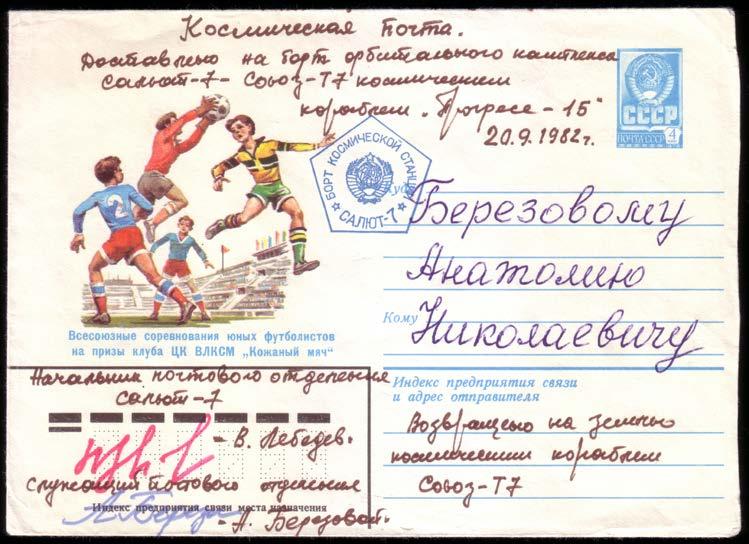 Космическая Почта.
Доставлено на борт орбитального комплекса
Салют-7 - Союз-Т7 космическим
кораблем „Прогресс-15"
20.9.1982г.
СССР
ПОЧТА СССР 4
БОРТ КОСМИЧЕСКОЙ СТАНЦИИ
САЛЮТ-7
2
Куда
Березовому
Анатолию
Кому Николаевичу
Всесоюзные соревнования юных футболистов
на призы клуба ЦК ВЛКСМ „Кожаный мяч"
Индекс предприятия связи
и адрес отправителя
Возвращено на землю
космическим кораблем
Союз-Т7
Начальник почтового отделения
Салют-7
- В. Лебедев.
Служащий Почтового отделения
Индекс предприятия связи места назначения
- А. Березовой.